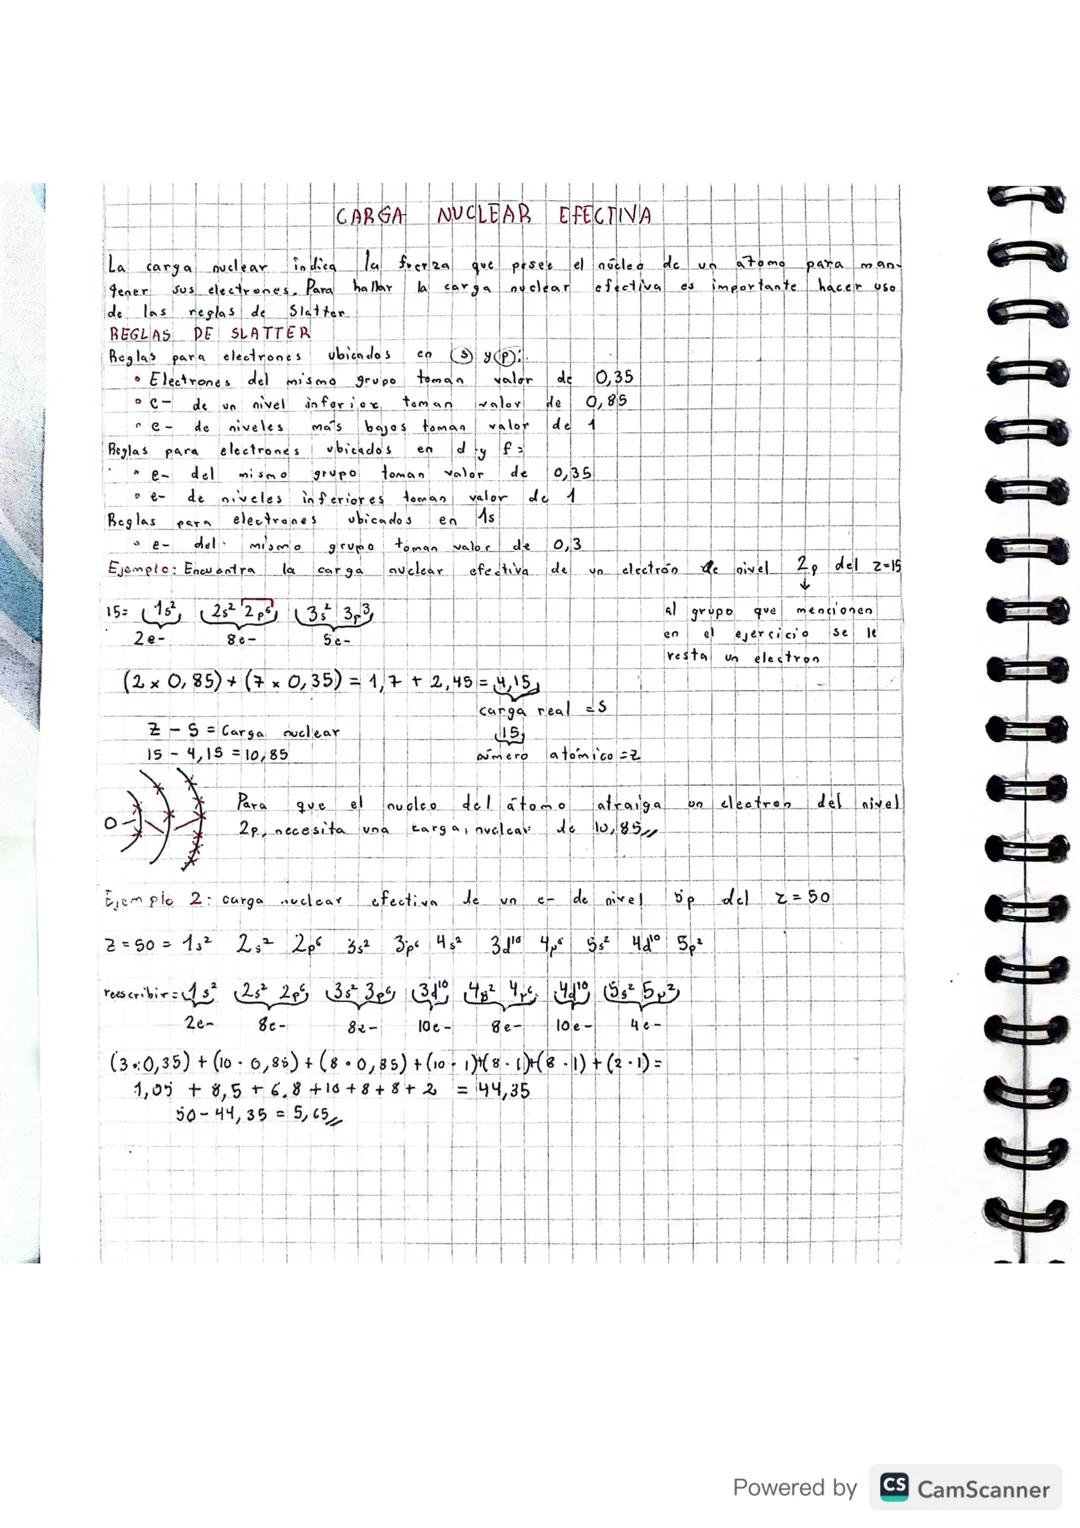 CARGA NUCLEAR EFECTIVA
La carga nuclear indica la fuerza que posee el núcleo de un átomo para man-
tener sus electrones. Para hallar la carga nuclear efectiva es importante hacer uso
de las reglas de Slatter.
REGLAS DE SLATTER
Reglas para electrones ubicados en s y p:
• Electrones del mismo grupo toman valor de 0,35
• e- de un nivel inferior toman valor de 0,85
• e- de niveles más bajos toman valor de 1
Reglas para electrones ubicados en d y f:
• e- del mismo grupo toman valor de 0,35
• e- de niveles inferiores toman valor de 1
Reglas para electrones ubicados en 1s
• e- del mismo grupo toman valor de 0,3
Ejemplo: Encuentra la carga nuclear efectiva de un electrón de nivel 2p del z=15
15= 1s² 2s² 2p⁶ 3s² 3p³
2e- 8e- 5e-
al grupo que mencionen
en el ejercicio se le
resta un electron
(2 x 0,85) + (7 x 0,35) = 1,7 + 2,45 = 4,15
carga real = S
Z - S = Carga nuclear
15
15 - 4,15 = 10,85
número atómico = Z
Para que el nucleo del átomo atraiga un electron del nivel
2p, necesita una carga nuclear de 10,85
Ejemplo 2: carga nuclear efectiva de un e- de nivel 5p del z = 50
Z = 50 = 1s² 2s² 2p⁶ 3s² 3p⁶ 4s² 3d¹⁰ 4p⁶ 5s² 4d¹⁰ 5p²
reescribir = 1s² 2s² 2p⁶ 3s² 3p⁶ 3d¹⁰ 4s² 4p⁶ 4d¹⁰ 5s² 5p²
2e- 8e- 8e- 10e- 8e- 10e- 4e-
(3·0,35) + (10·0,85) + (8·0,85) + (10·1) + (8·1) + (8·1) + (2·1) =
1,05 + 8,5 + 6.8 + 10 + 8 + 8 + 2 = 44,35
50 - 44,35 = 5,65
Powered by CS CamScanner